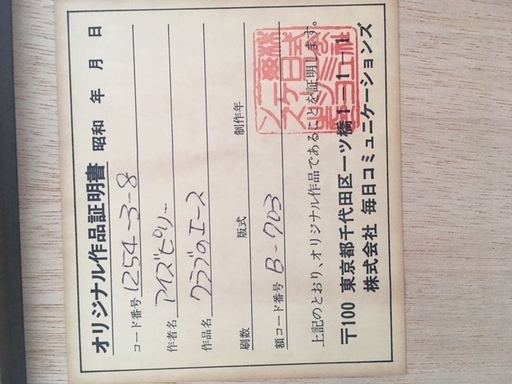 オリジナル作品証明書 昭和 年 月 日
コード番号 1254-3-8
作者名 アイズピリー
作品名 クラブのエース
刷数 版式 制作年
額コード番号 B-703
上記のとおり、オリジナル作品であることを証明します。
〒100 東京都千代田区一ツ橋1-1-1
株式会社 毎日コミュニケーションズ